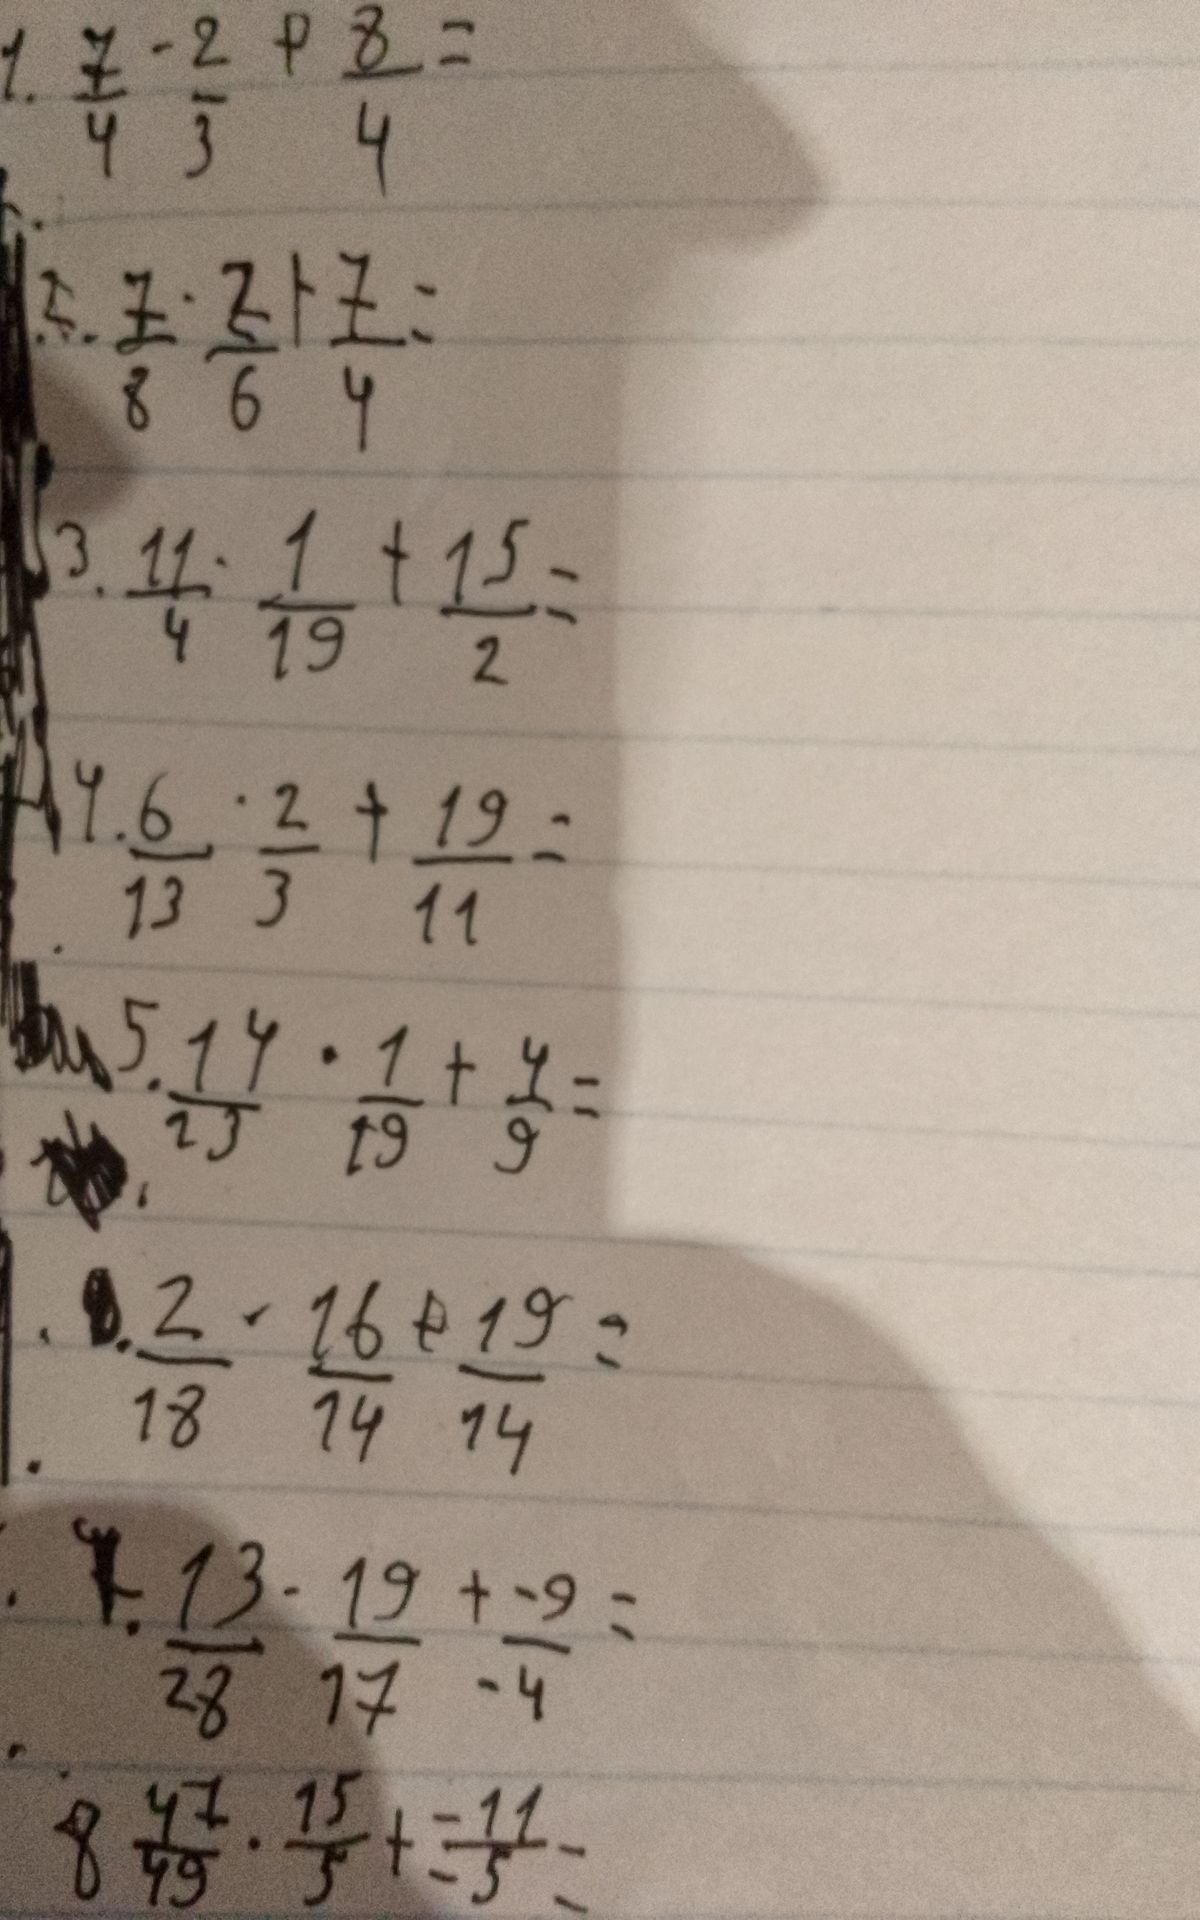 1. 7/4 · 2/3 + 8/4 =
2. 7/8 · 7/6 + 7/4 =
3. 11/4 · 1/19 + 15/2 =
4. 6/13 · 2/3 + 19/11 =
5. 14/23 · 1/19 + 4/9 =
2/18 · 16/14 + 19/14 =
7. 13/28 · 19/17 + -9/-4 =
8 47/49 · 15/5 + -11/-5 =